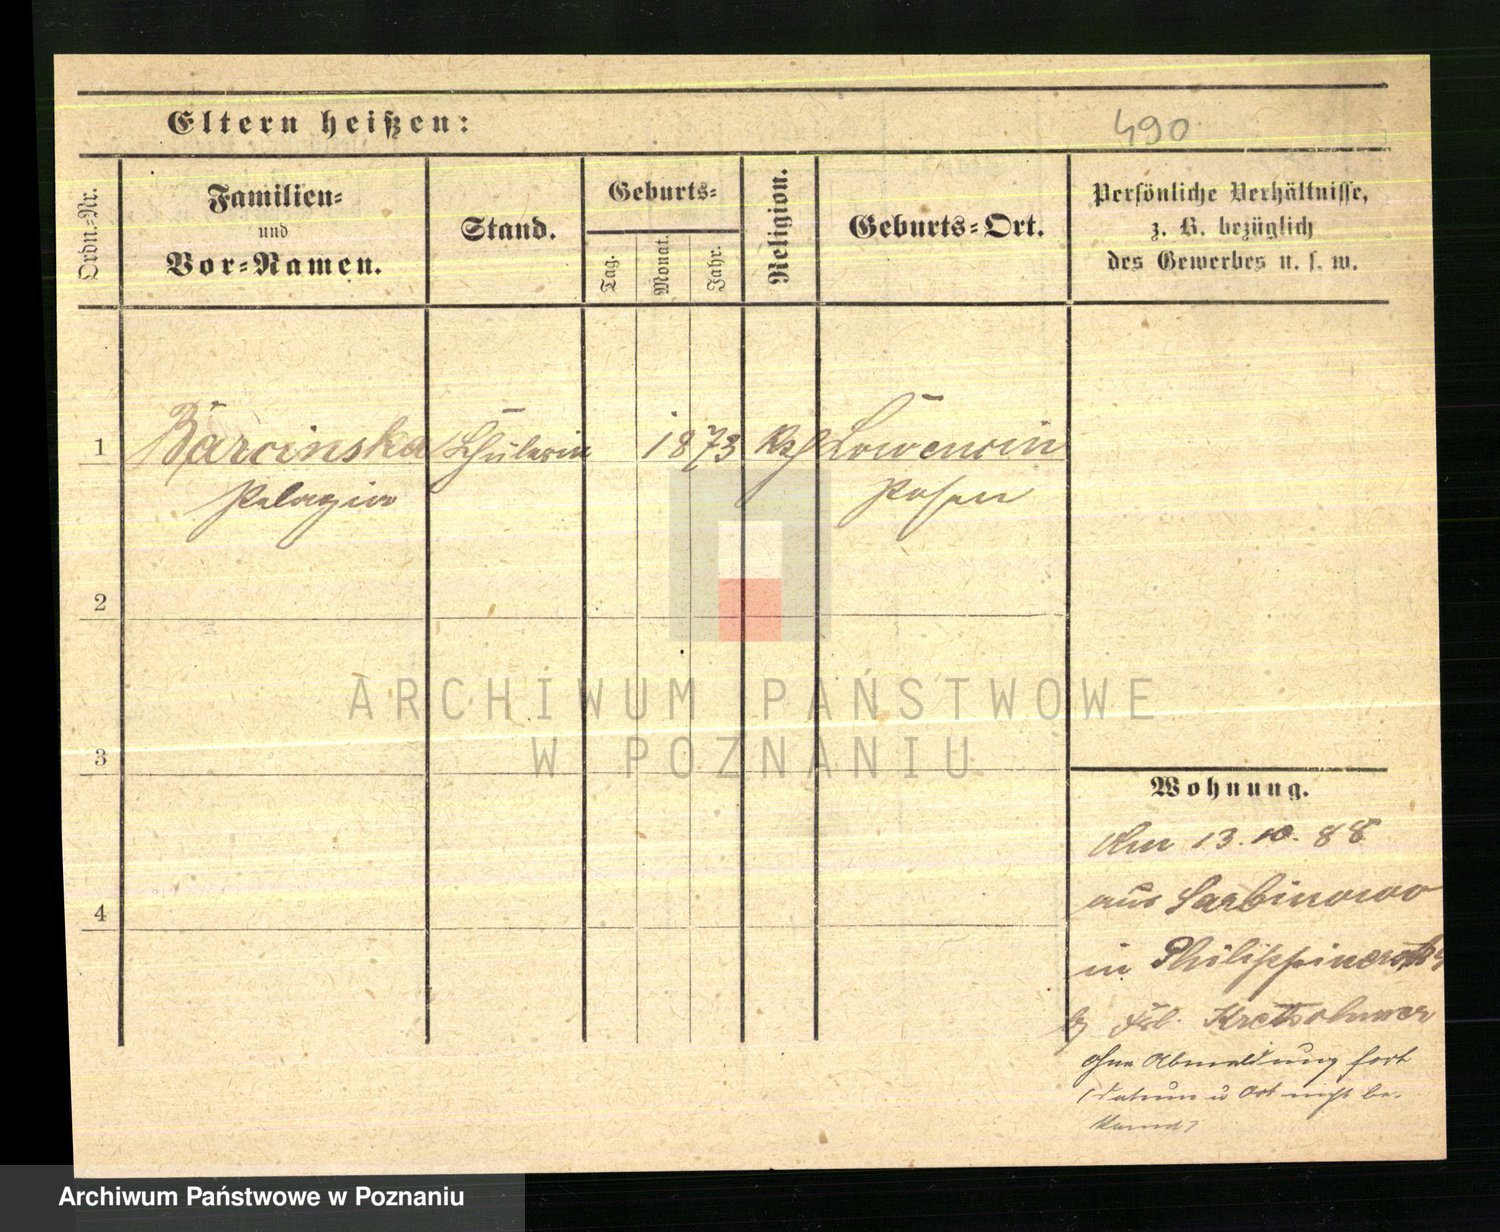 Eltern heißen:
490
Ordn.-Nr.
Familien-
und
Vor-Namen.
Stand.
Geburts-
Tag.
Monat.
Jahr.
Religion.
Geburts-Ort.
Persönliche Verhältnisse,
z. B. bezüglich
des Gewerbes u. s. w.
1
Barcinska
Schülerin
1873
Lowencin
Pelagia
Posen
2
3
4
ARCHIWUM PAŃSTWOWE
W POZNANIU
Wohnung.
Am 13.10.88
aus Sarbinowo
in
b Frl. Kretschmer
ohne Abmeldung fort
(Datum u Ort nicht be-
kannt)
Archiwum Państwowe w Poznaniu